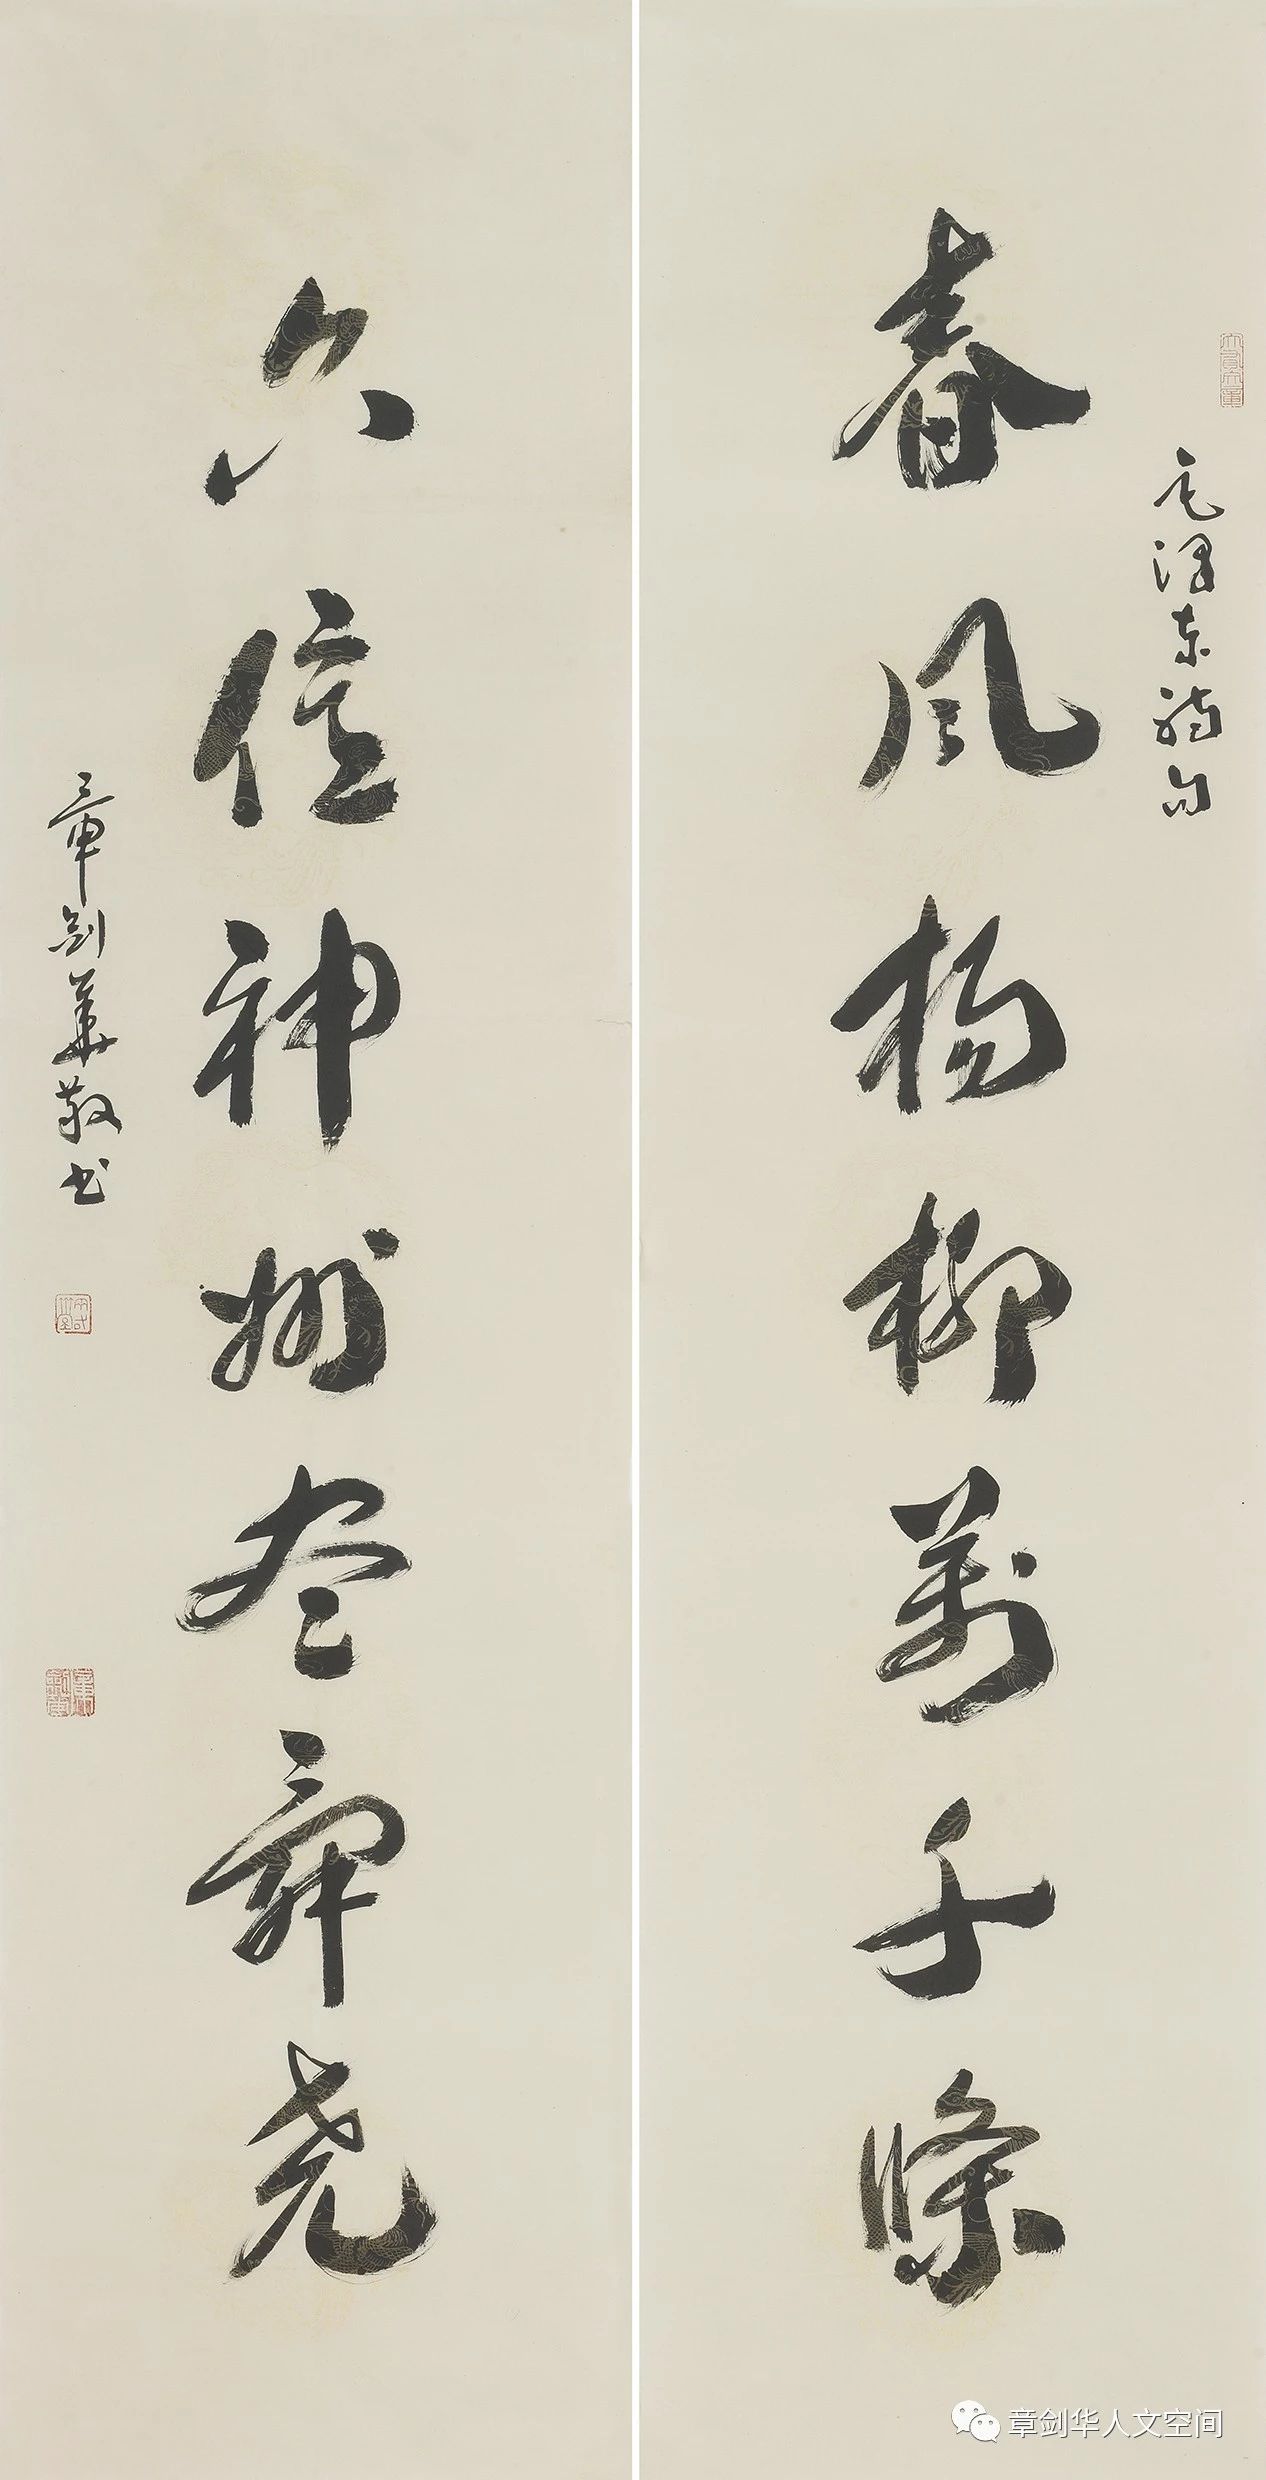 毛泽东诗句
春风杨柳萬千條
六億神州尽舜尧
章剑華敬书
章剑华人文空间